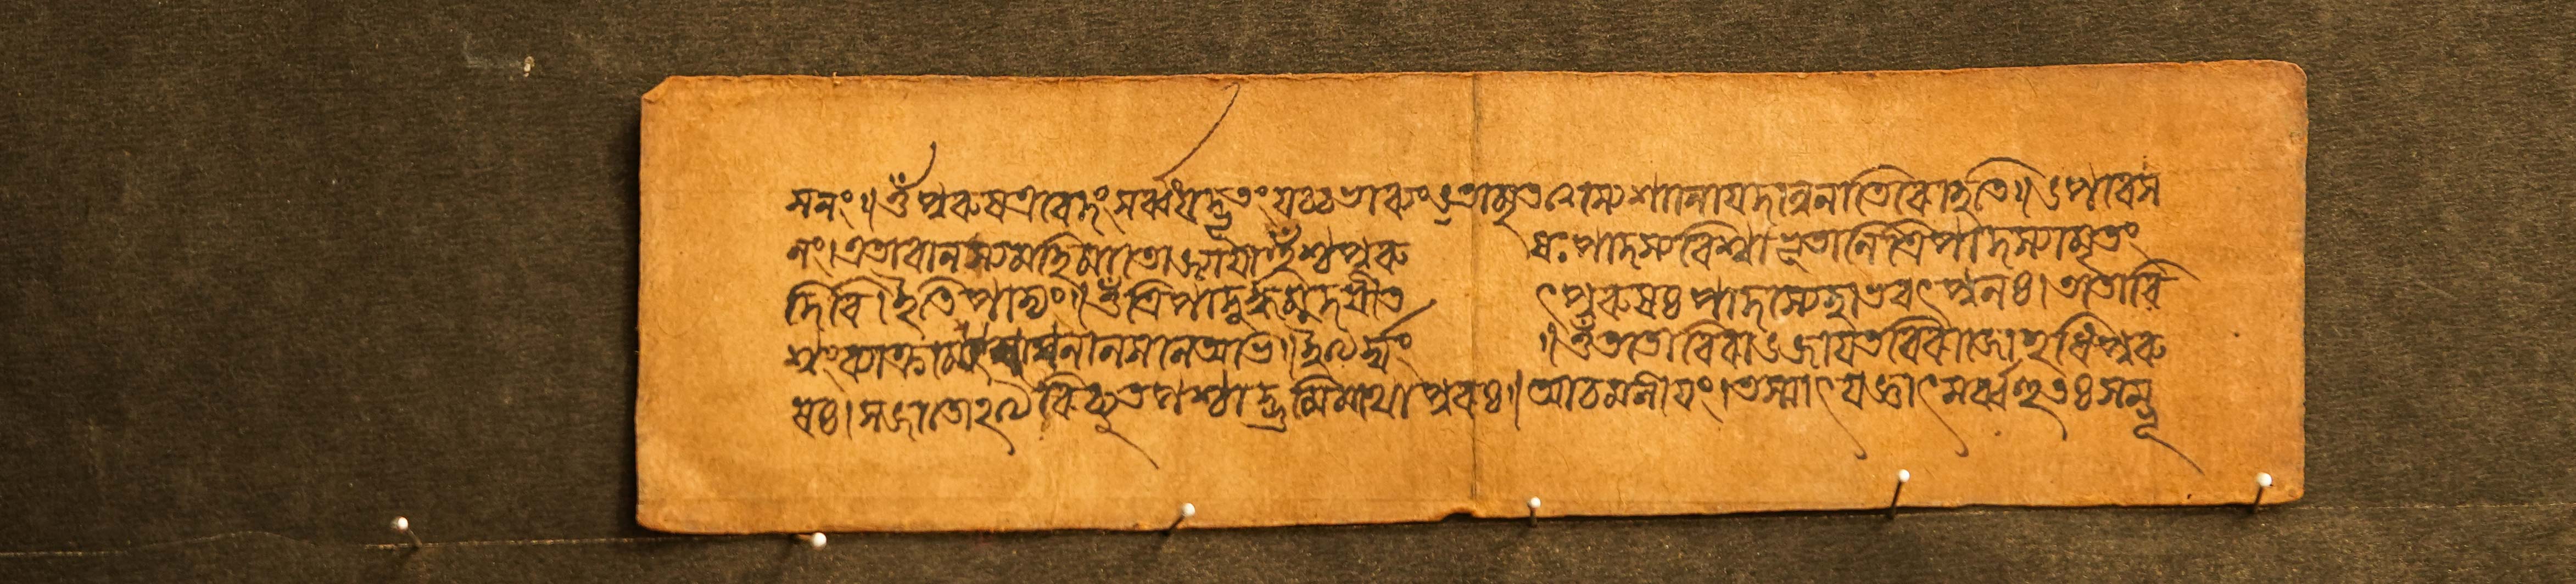 সনং॥ ওঁ পুৰুষ এবেদং সর্ব্বং যদ্ভূতং যচ্চ ভাব্যং উতামৃতত্বস্যেশানো যদন্নেনাতিৰোহতি॥
নং। এতাবানস্য মহিমাতো জ্যায়াংশ্চ পুৰু ষঃ পাদস্য বিশ্বা ভূতানি ত্রিপাদস্যামৃতং
দিবি। ইতি পাদ্যং॥ ওঁ ত্রিপাদূর্দ্ধ উদৈত ৎপুৰুষঃ পাদস্যেহাভবৎ পুনঃ। ততো বি
সাশনানশনে অভি॥ ॥ ওঁ ততো বিৰাড জায়ত বিৰাজো অধি পুৰু
ষঃ। স জাতো অত্যৰিচ্যত পশ্চাদ্ভূমিমথো পুৰঃ॥ আচমনীয়ং। তস্মাৎ যজ্ঞাৎ সর্ব্বহুতঃ সম্ভূ